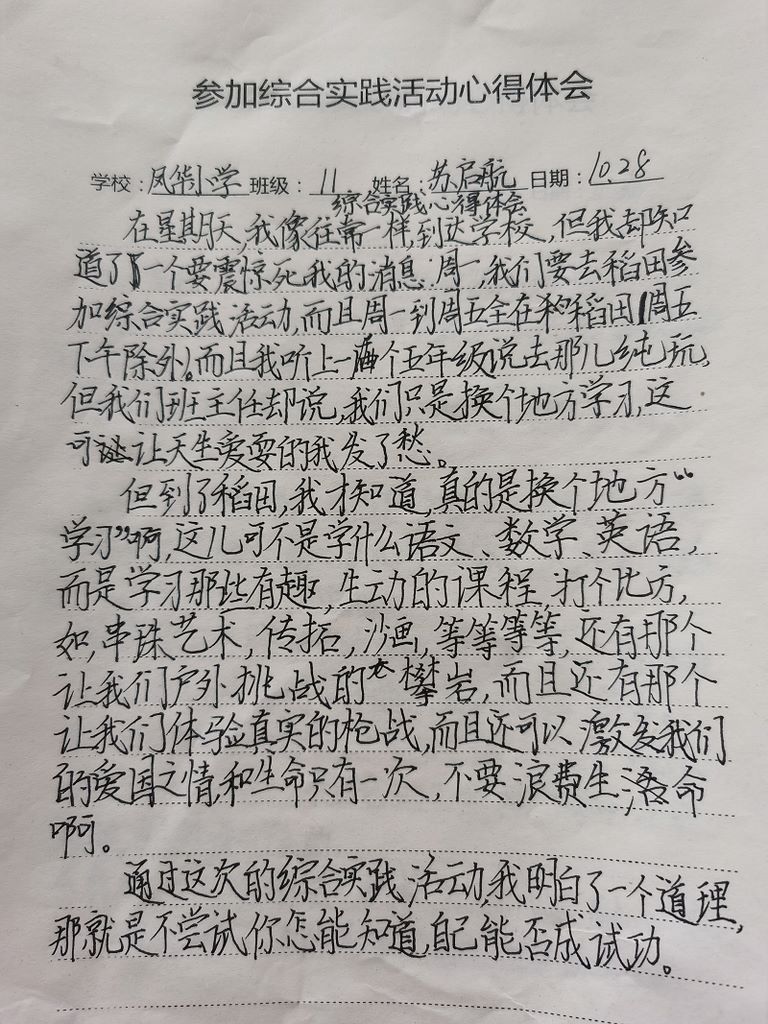 参加综合实践活动心得体会
学校：凤华小学 班级：11 姓名：苏启航 日期：10.28
综合实践心得体会
在星期天，我像往常一样，到达学校，但我却知
道了一个要震惊死我的消息 周一，我们要去稻田参
加综合实践活动，而且周一到周五全在稻田（周五
下午除外）。而且我听上一个五年级说去那儿纯玩，
但我们班主任却说，我们只是换个地方学习，这
可让天生爱耍的我发了愁。
但到了稻田，我才知道，真的是换个地方“
学习”啊，这儿可不是学什么语文、数学、英语，
而是学习那些有趣，生动的课程 打个比方，
如，串珠艺术，传拓，沙画，等等等等，还有那个
让我们户外挑战的攀岩，而且还有那个
让我们体验真实的枪战，而且还可以激发我们
的爱国之情，和生命只有一次，不要浪费生命
啊。
通过这次的综合实践活动，我明白了一个道理，
那就是不尝试你怎能知道，自己能否成试功。